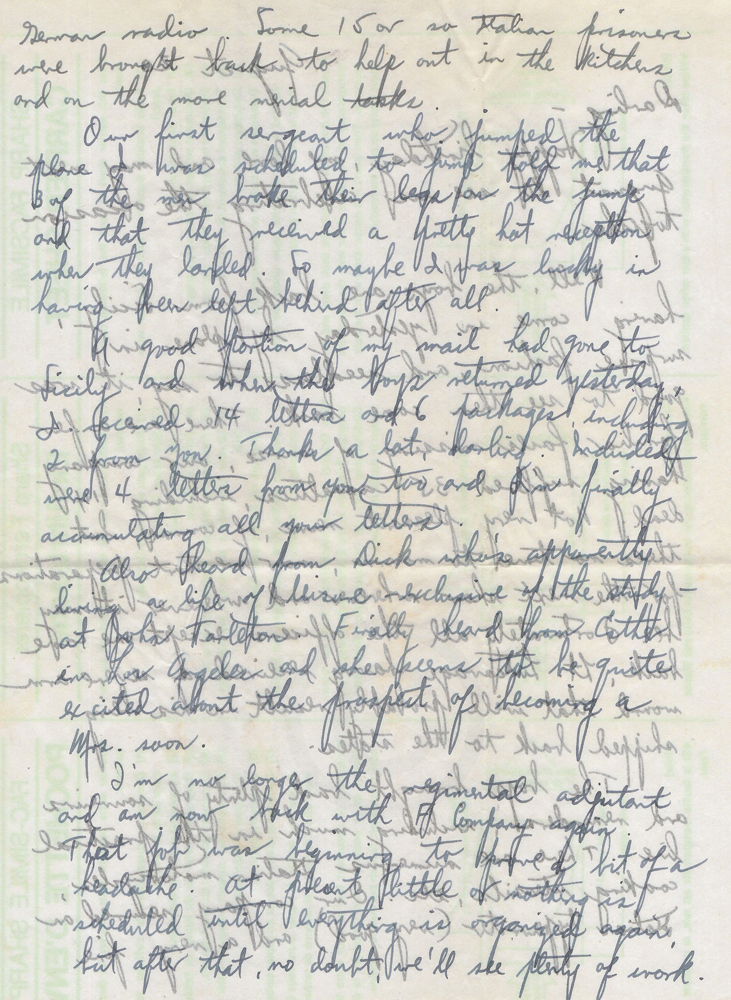 German radio. Some 15 or so Italian prisoners
were brought back to help out in the kitchens
and on the more menial tasks.
Our first sergeant who jumped the
plane I was scheduled to jump told me that
3 of the men broke their legs on the jump
and that they received a pretty hot reception
when they landed. So maybe I was lucky in
having been left behind after all.
A good portion of my mail had gone to
Sicily and when the boys returned yesterday,
I received 14 letters and 6 packages including
2 from you. Thanks a lot, darling. Included
were 4 letters from you too and I'm finally
accumulating all your letters.
Also heard from Dick who's apparently
living a life of leisure - exclusive of the study -
at John Tarleton. Finally heard from
in Los Angeles and she seems to be quite
excited about the prospect of becoming a
Mrs. soon.
I'm no longer the regimental adjutant
and am now back with A Company again.
That job was beginning to prove a bit of a
headache. At present little or nothing is
scheduled until everything is organized again,
but after that, no doubt, we'll see plenty of work.